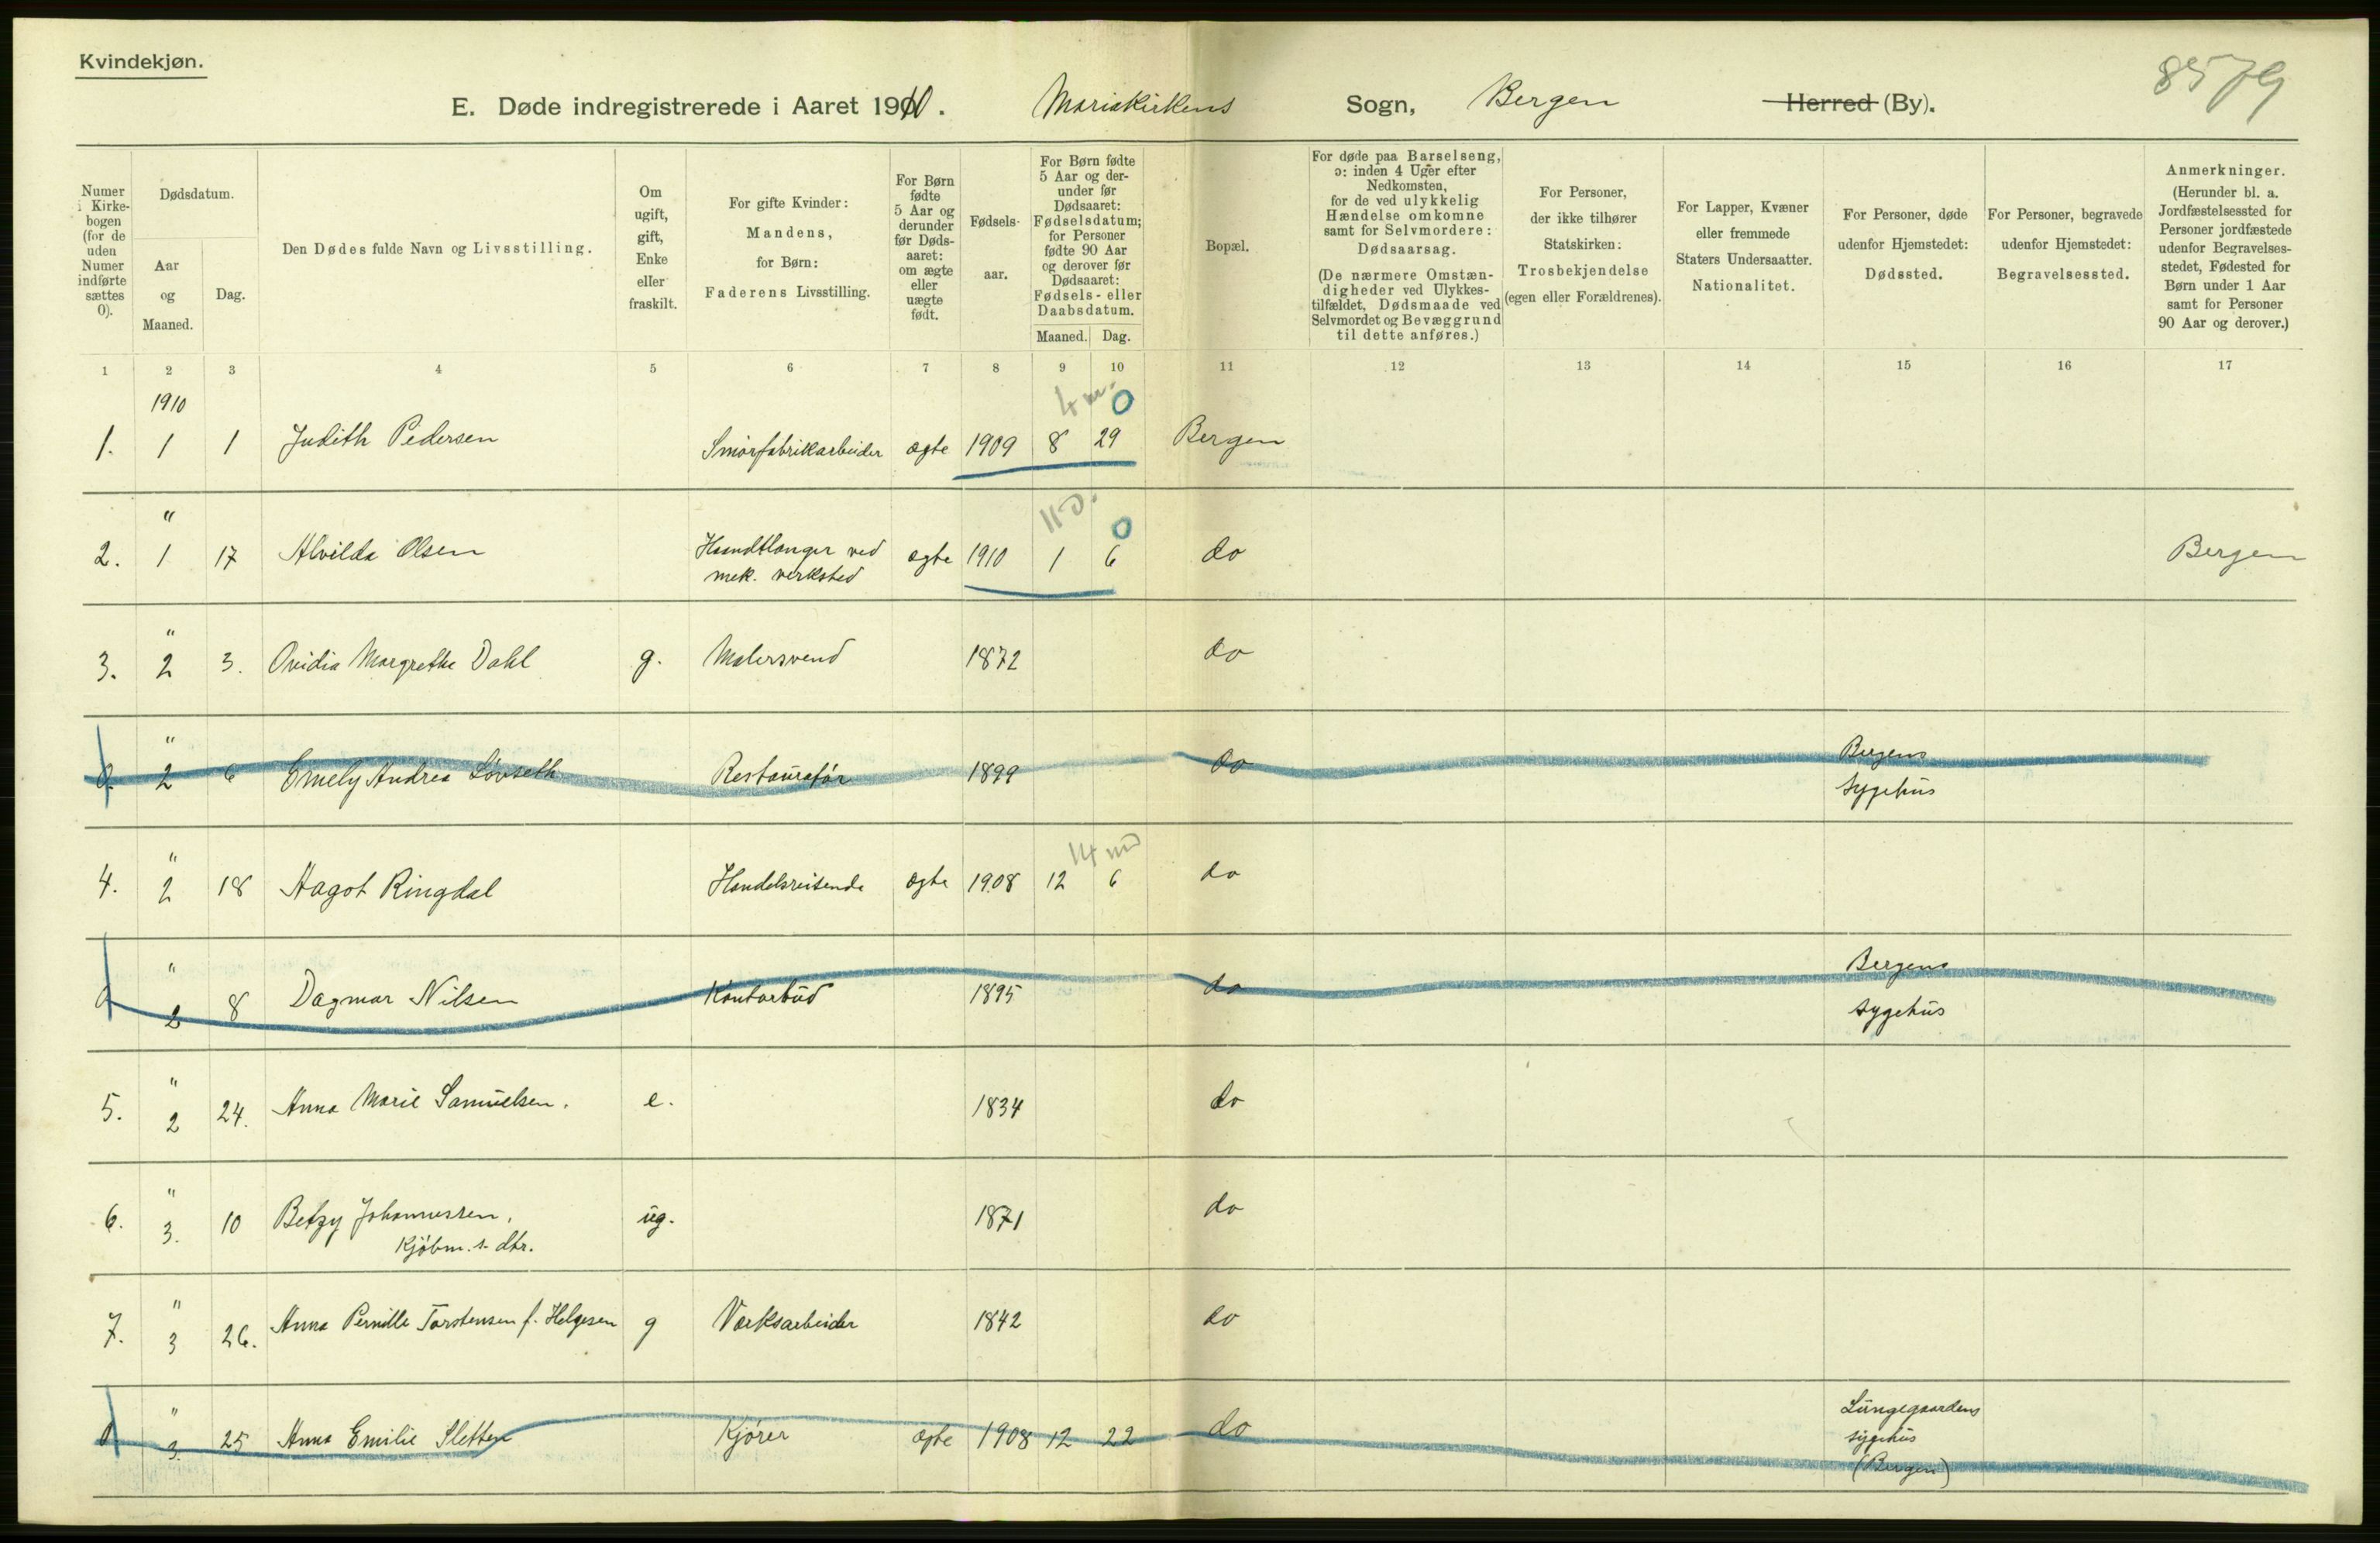 Kvindekjøn.
8579
E. Døde indregistrerede i Aaret 1910. Mariakirkens Sogn, Bergen Herred (By).
Numer i Kirkebogen (for de uden Numer indførte sættes 0).
Dødsdatum.
Aar og Maaned.
Dag.
Den Dødes fulde Navn og Livsstilling.
Om ugift, gift, Enke eller fraskilt.
For gifte Kvinder: Mandens, for Børn: Faderens Livsstilling.
For Børn fødte 5 Aar og derunder før Dødsaaret: om ægte eller uægte født.
Fødselsaar.
For Børn fødte 5 Aar og derunder før Dødsaaret: Fødselsdatum; for Personer fødte 90 Aar og derover før Dødsaaret: Fødsels- eller Daabsdatum.
Maaned. Dag.
Bopæl.
For døde paa Barselseng, ɔ: inden 4 Uger efter Nedkomsten, for de ved ulykkelig Hændelse omkomne samt for Selvmordere: Dødsaarsag.
(De nærmere Omstændigheder ved Ulykkestilfældet, Dødsmaade ved Selvmordet og Bevæggrund til dette anføres.)
For Personer, der ikke tilhører Statskirken: Trosbekjendelse (egen eller Forældrenes).
For Lapper, Kvæner eller fremmede Staters Undersaatter. Nationalitet.
For Personer, døde udenfor Hjemstedet: Dødssted.
For Personer, begravede udenfor Hjemstedet: Begravelsessted.
Anmerkninger.
(Herunder bl. a. Jordfæstelsessted for Personer jordfæstede udenfor Begravelsesstedet, Fødested for Børn under 1 Aar samt for Personer 90 Aar og derover.)
1 2 3 4 5 6 7 8 9 10 11 12 13 14 15 16 17
1910
4 m. 0
1. 1 1 Judith Pedersen Smörfabrikarbeider ægte 1909 8 29 Bergen
" 11 D. 0
2. 1 17 Alvilda Olsen Haandtlanger ved mek. verksted ægte 1910 1 6 do Bergen
"
3. 2 3. Ovidia Margrethe Dahl g. Malersvend 1872 do
"
0. 2 6 Emely Andrea Lövseth Restauratör 1899 do Bergens sygehus
" 14 md
4. 2 18 Aagot Ringdal Handelsreisende ægte 1908 12 6 do
"
0 2 8 Dagmar Nilsen Kontorbud 1895 do Bergens sygehus
"
5. 2 24. Anna Marie Samuelsen. e. 1834 do
"
6. 3. 10 Betzy Johannessen, ug. 1871 do
Kjöbm.s. dtr.
"
7. 3 26. Anna Pernille Torstensen f. Helgesen g Værksarbeider 1842 do
"
0 3. 25 Anna Emilie Sletten Kjörer ægte 1908 12 22 do Lungegaardens sygehus (Bergen)